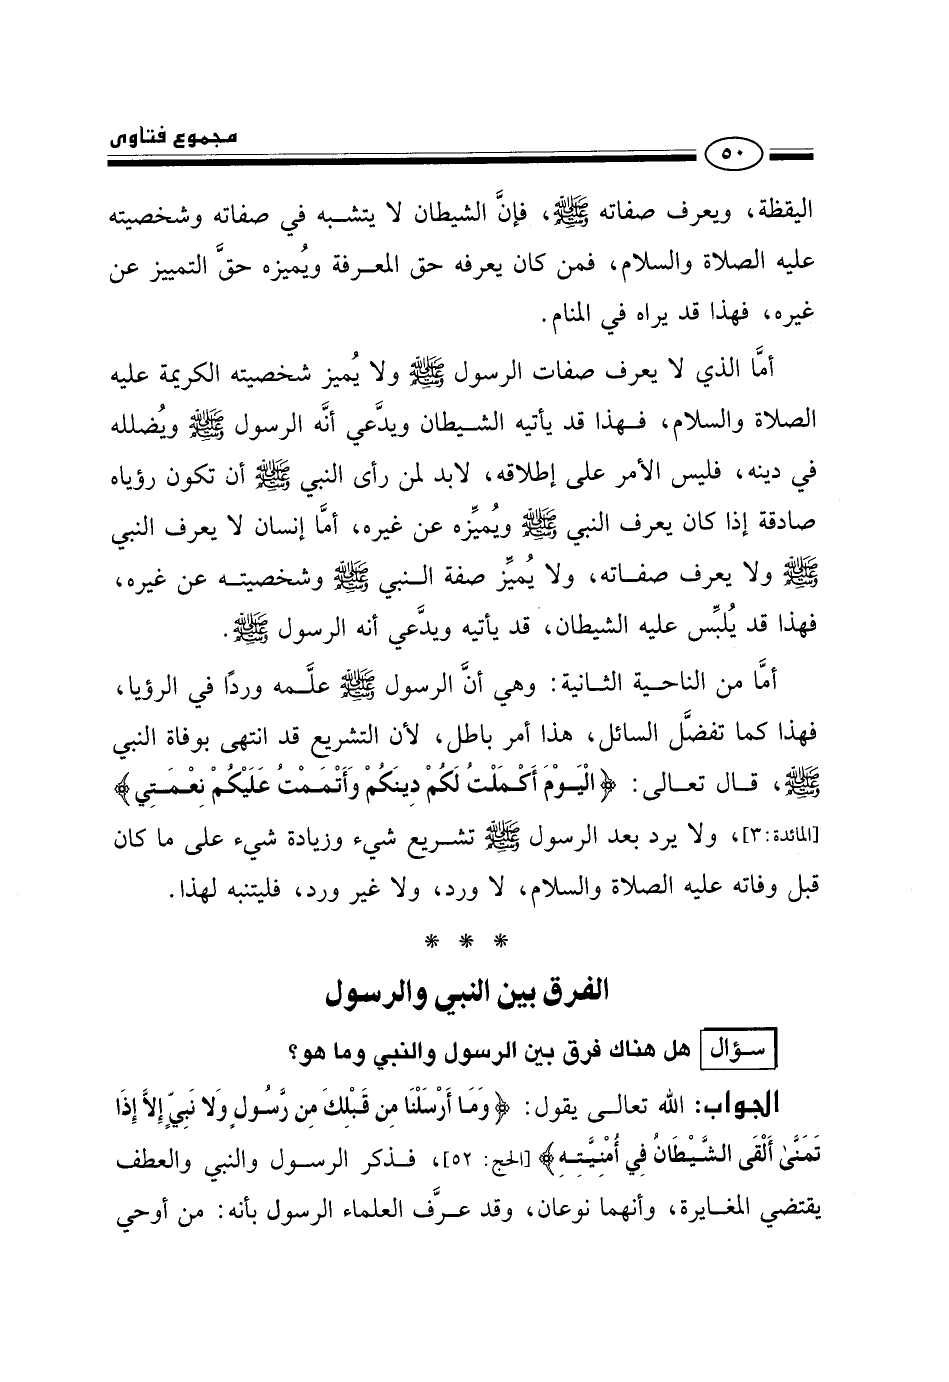 مجموع فتاوى
٥٠
اليقظة، ويعرف صفاته ﷺ، فإنَّ الشيطان لا يتشبه في صفاته وشخصيته
عليه الصلاة والسلام، فمن كان يعرفه حق المعرفة ويُميزه حقَّ التمييز عن
غيره، فهذا قد يراه في المنام.
أمَّا الذي لا يعرف صفات الرسول ﷺ ولا يُميز شخصيته الكريمة عليه
الصلاة والسلام، فهذا قد يأتيه الشيطان ويدَّعي أنَّه الرسول ﷺ ويُضلله
في دينه، فليس الأمر على إطلاقه، لابد لمن رأى النبي ﷺ أن تكون رؤياه
صادقة إذا كان يعرف النبي ﷺ ويُميِّزه عن غيره، أمَّا إنسان لا يعرف النبي
ﷺ ولا يعرف صفاته، ولا يُميِّز صفة النبي ﷺ وشخصيته عن غيره،
فهذا قد يُلبِّس عليه الشيطان، قد يأتيه ويدَّعي أنه الرسول ﷺ.
أمَّا من الناحية الثانية: وهي أنَّ الرسول ﷺ علَّمه وردًا في الرؤيا،
فهذا كما تفضَّل السائل، هذا أمر باطل، لأن التشريع قد انتهى بوفاة النبي
ﷺ، قال تعالى: ﴿الْيَوْمَ أَكْمَلْتُ لَكُمْ دِينَكُمْ وَأَتْمَمْتُ عَلَيْكُمْ نِعْمَتِي﴾
[المائدة:٣]، ولا يرد بعد الرسول ﷺ تشريع شيء وزيادة شيء على ما كان
قبل وفاته عليه الصلاة والسلام، لا ورد، ولا غير ورد، فليتنبه لهذا.
* * *
الفرق بين النبي والرسول
سؤال هل هناك فرق بين الرسول والنبي وما هو؟
الجواب: الله تعالى يقول: ﴿وَمَا أَرْسَلْنَا مِن قَبْلِكَ مِن رَّسُولٍ وَلَا نَبِيٍّ إِلاَّ إِذَا
تَمَنَّىٰ أَلْقَى الشَّيْطَانُ فِي أُمْنِيَّتِهِ﴾ [الحج: ٥٢]، فذكر الرسول والنبي والعطف
يقتضي المغايرة، وأنهما نوعان، وقد عرَّف العلماء الرسول بأنه: من أوحي